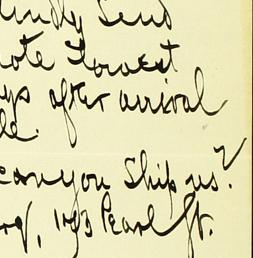 indly Send
ote Lowest
ys after arrival
le.
can you Ship us?
rg, 193 Pearl St.